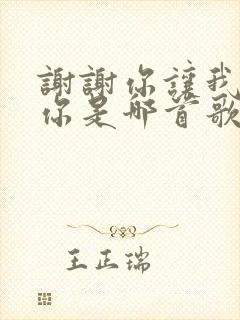 謝謝你讓我
你是那首歌
王正瑞